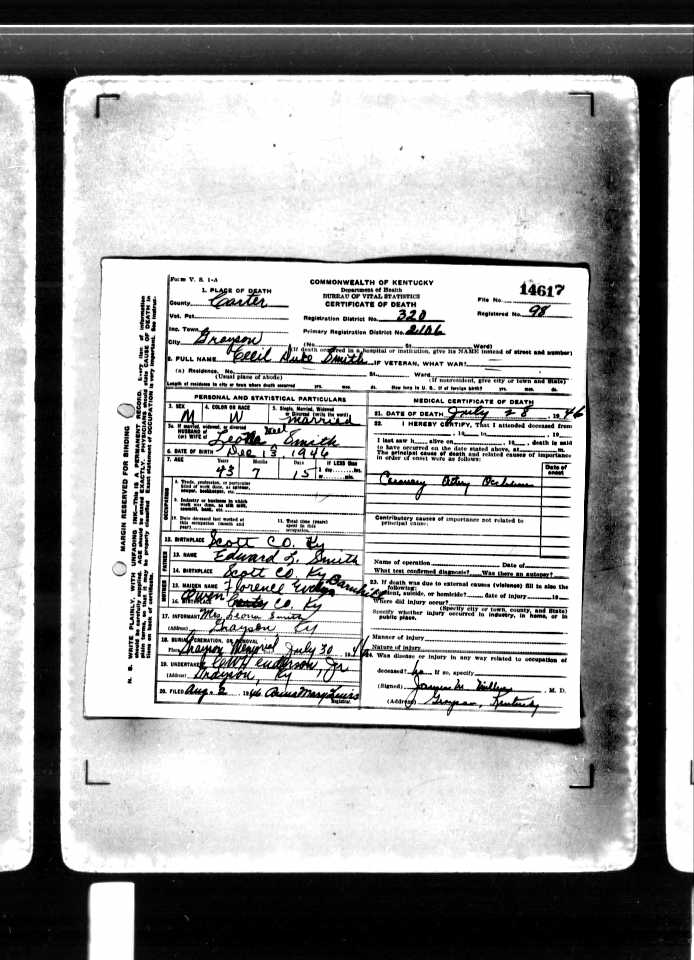 Form V. S. 1-A
COMMONWEALTH OF KENTUCKY
Department of Health
BUREAU OF VITAL STATISTICS
CERTIFICATE OF DEATH
14617
File No.
Registered No. 98
1. PLACE OF DEATH
County Carter
Vot. Pct.
Inc. Town
City Grayson
Registration District No. 320
Primary Registration District No. 2106
(No. St. Ward)
(If death occurred in a hospital or institution, give its NAME instead of street and number)
2. FULL NAME Cecil Duke Smith IF VETERAN, WHAT WAR?
(a) Residence. No. St. Ward
(Usual place of abode) (If nonresident, give city or town and State)
Length of residence in city or town where death occurred yrs. mos. ds. How long in U. S., if of foreign birth? yrs. mos. ds.
PERSONAL AND STATISTICAL PARTICULARS
3. SEX M
4. COLOR OR RACE W
5. Single, Married, Widowed or Divorced (write the word) Married
5a. If married, widowed, or divorced
HUSBAND of
(or) WIFE of Smith
6. DATE OF BIRTH Dec 13 1946
7. AGE Years 43 Months 7 Days 15 If LESS than 1 day hrs. or min.
OCCUPATION
8. Trade, profession, or particular kind of work done, as spinner, sawyer, bookkeeper, etc.
9. Industry or business in which work was done, as silk mill, sawmill, bank, etc.
10. Date deceased last worked at this occupation (month and year)
11. Total time (years) spent in this occupation
12. BIRTHPLACE Scott CO. Ky
FATHER
13. NAME Edward L. Smith
14. BIRTHPLACE Scott CO. Ky
MOTHER
15. MAIDEN NAME Florence
16. BIRTHPLACE Owen CO. Ky
17. INFORMANT Mrs. Leona Smith
(Address) Grayson Ky
18. BURIAL, CREMATION, OR REMOVAL
Place Grayson Memorial July 30 1946
19. UNDERTAKER Henderson, Jr
(Address) Grayson, Ky
20. FILED Aug. 2 1946 Lewis
Registrar.
MEDICAL CERTIFICATE OF DEATH
21. DATE OF DEATH July 28, 1946
22. I HEREBY CERTIFY, That I attended deceased from
, 19 , to , 19
I last saw h alive on , 19 , death is said
to have occurred on the date stated above, at m.
The principal cause of death and related causes of importance
in order of onset were as follows:
Date of onset
Coronary Artery Occlusion
Contributory causes of importance not related to
principal cause:
Name of operation Date of
What test confirmed diagnosis? Was there an autopsy?
23. If death was due to external causes (violence) fill in also the
following:
Accident, suicide, or homicide? date of injury 19
Where did injury occur?
(Specify city or town, county, and State)
Specify whether injury occurred in industry, in home, or in
public place.
Manner of injury
Nature of injury
24. Was disease or injury in any way related to occupation of
deceased? no If so, specify
(Signed) , M. D.
(Address) Grayson, Kentucky
MARGIN RESERVED FOR BINDING